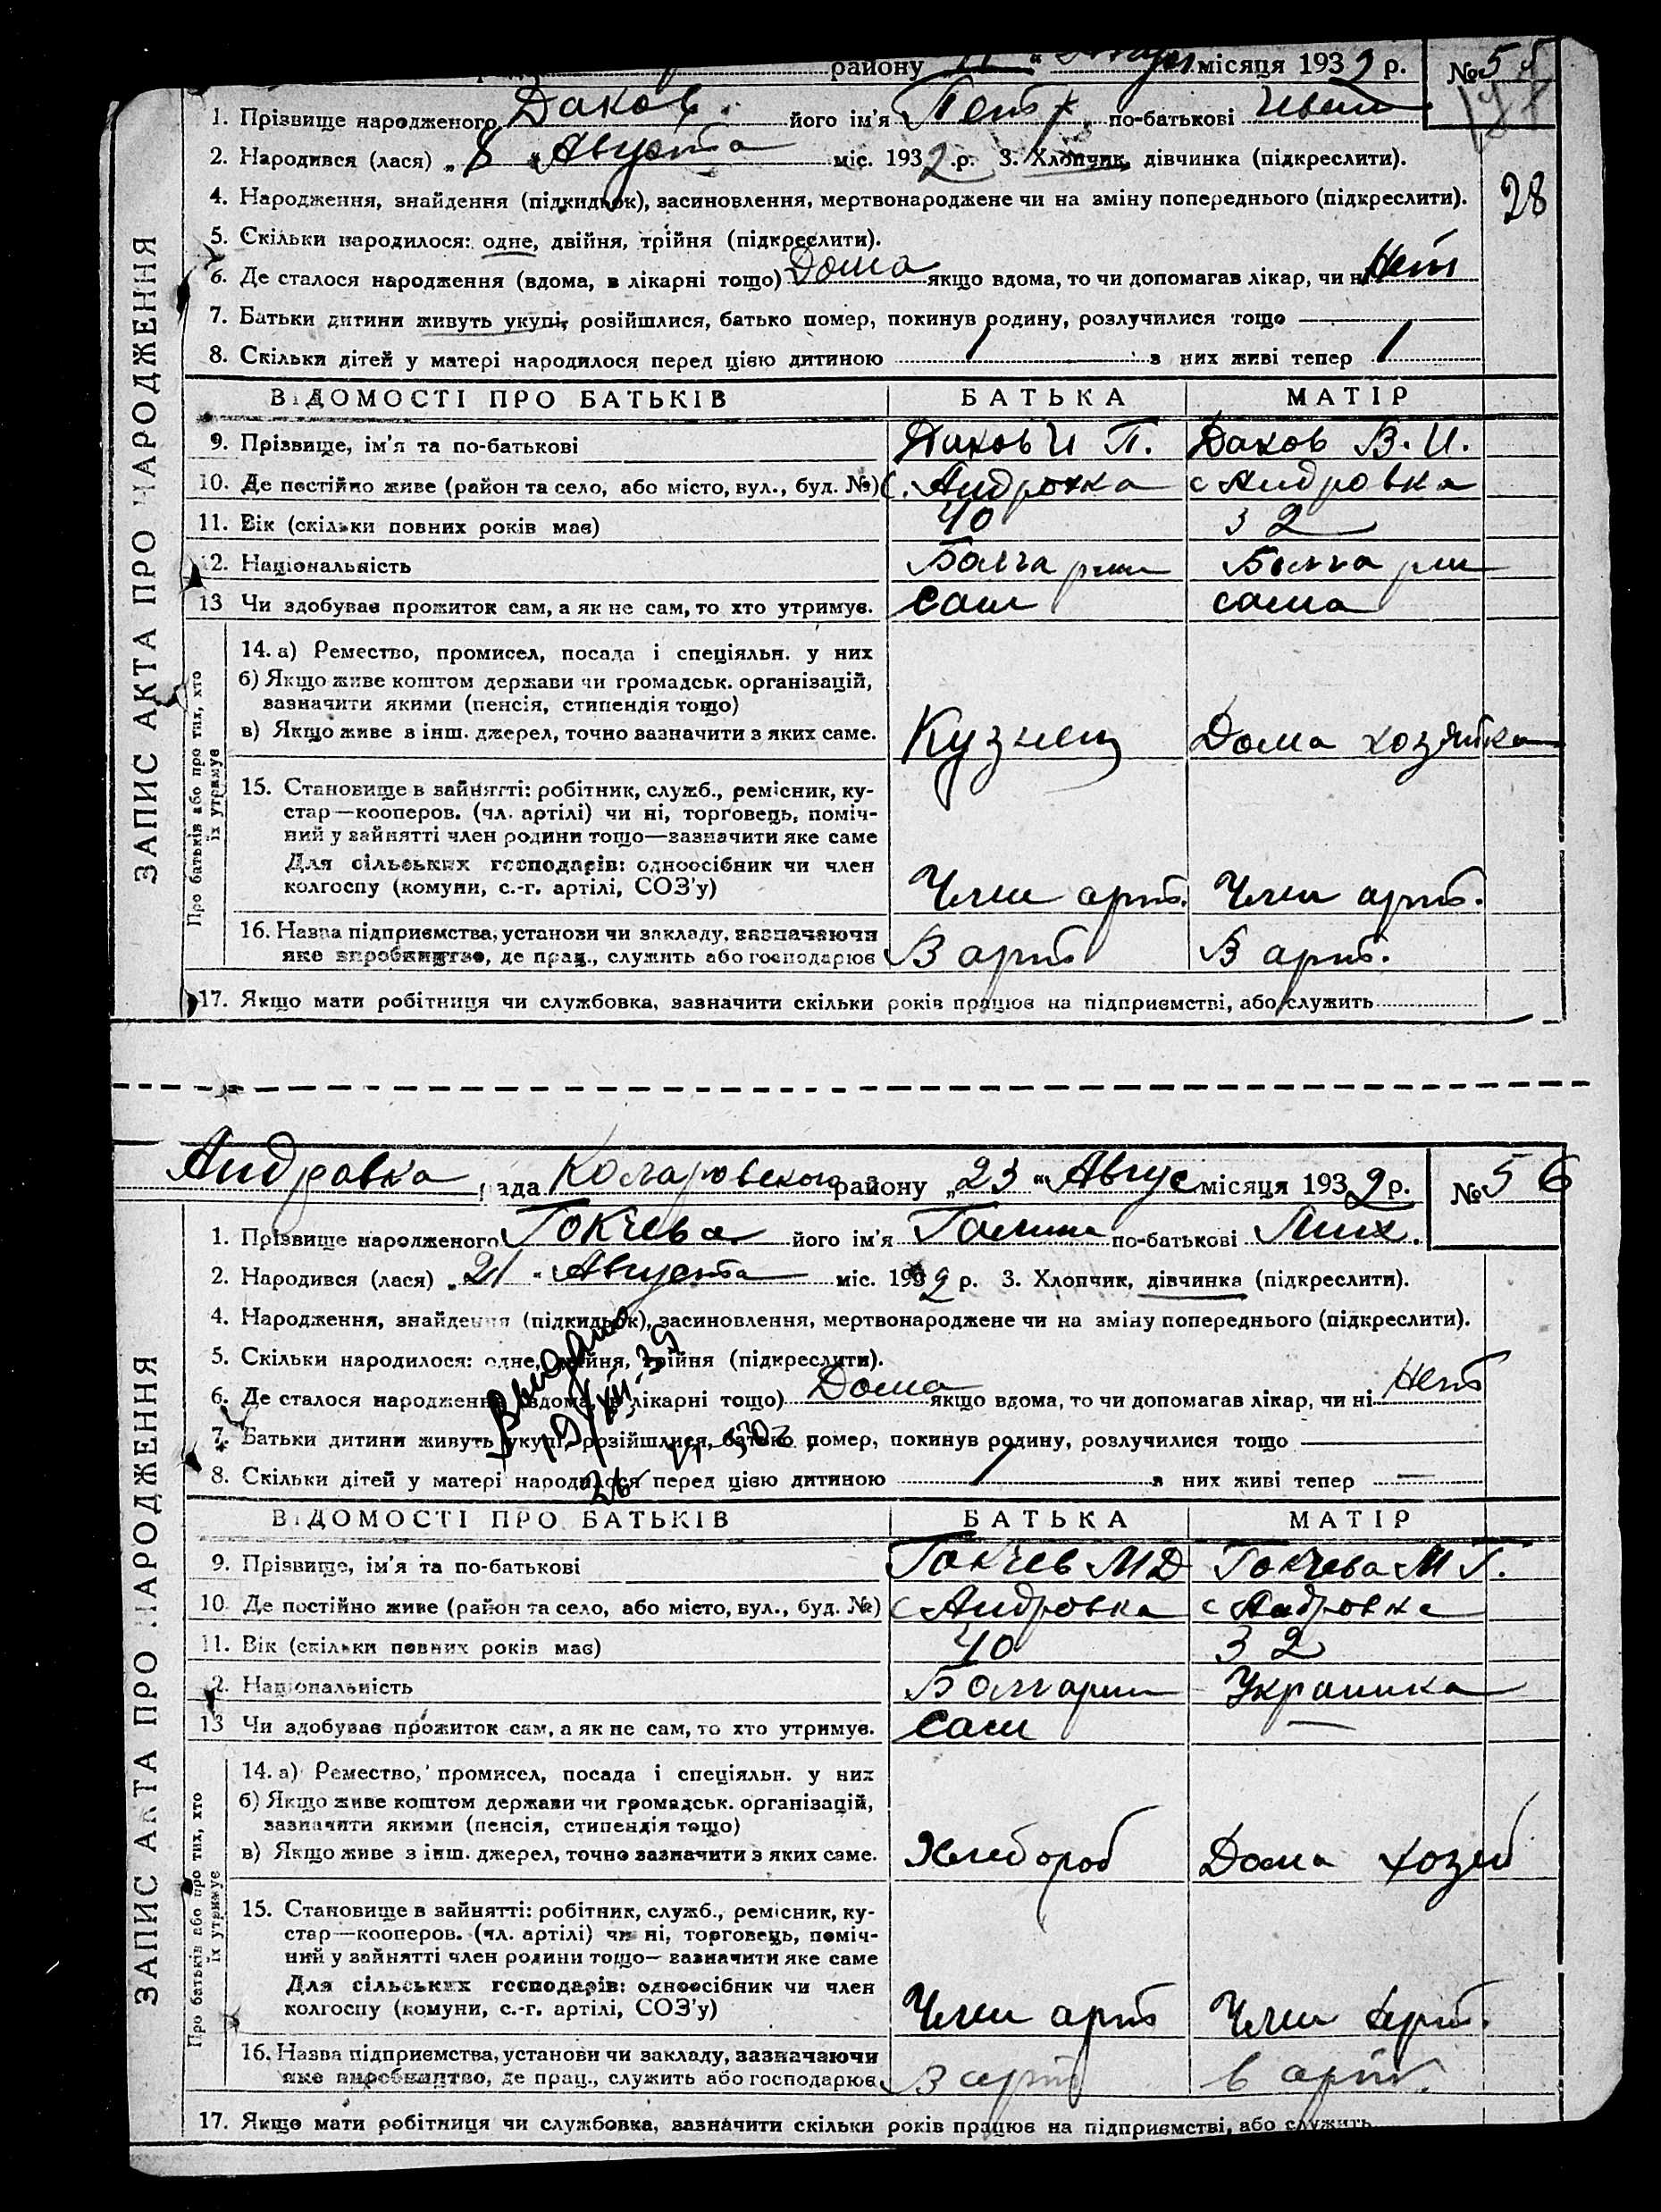 району 11 " Август місяця 1932 р. № 55
1. Прізвище народженого Даков його ім'я Петр по-батькові Иван
2. Народився (лася) „ 8 " Августа міс. 1932 р. 3. Хлопчик, дівчинка (підкреслити).
4. Народження, знайдення (підкидьок), засиновлення, мертвонароджене чи на зміну попереднього (підкреслити).
28
5. Скільки народилося: одне, двійня, трійня (підкреслити).
6. Де сталося народження (вдома, в лікарні тощо) Дома якщо вдома, то чи допомагав лікар, чи ні Нет
7. Батьки дитини живуть укупі, розійшлися, батько помер, покинув родину, розлучилися тощо
8. Скільки дітей у матері народилося перед цією дитиною 1 з них живі тепер 1
ВІДОМОСТІ ПРО БАТЬКІВ БАТЬКА МАТІР
9. Прізвище, ім'я та по-батькові Даков И П. Даков В. И.
10. Де постійно живе (район та село, або місто, вул., буд. №) с. Андровка с Андровка
11. Вік (скільки повних років має) 40 32
12. Національність Болгарин Болгарин
13 Чи здобував прожиток сам, а як не сам, то хто утримує. сам сама
14. а) Ремество, промисел, посада і спеціяльн. у них
б) Якщо живе коштом держави чи громадськ. організацій,
зазначити якими (пенсія, стипендія тощо)
в) Якщо живе з інш. джерел, точно зазначити з яких саме. Кузнец Дома хозяйка
15. Становище в зайнятті: робітник, служб., ремісник, ку-
стар—кооперов. (чл. артілі) чи ні, торговець, поміч-
ний у зайнятті член родини тощо—зазначити яке саме
Для сільських господарів: одноосібник чи член
колгоспу (комуни, с.-г. артілі, СОЗ'у) Член арт. Член арт.
16. Назва підприємства, установи чи закладу, зазначаючи
яке виробництво, де прац., служить або господарює В арт В арт.
17. Якщо мати робітниця чи службовка, зазначити скільки років працює на підприємстві, або служить
Про батьків або про тих, хто
їх утримує
ЗАПИС АКТА ПРО НАРОДЖЕННЯ
Андравка рада Коларовского району „ 23 " Авгус місяця 1932 р. № 56
1. Прізвище народженого Гокчева його ім'я Галина по-батькові Мих.
2. Народився (лася) „ 21 " Августа міс. 1932 р. 3. Хлопчик, дівчинка (підкреслити).
4. Народження, знайдення (підкидьок), засиновлення, мертвонароджене чи на зміну попереднього (підкреслити).
5. Скільки народилося: одне, двійня, трійня (підкреслити).
6. Де сталося народження (вдома, в лікарні тощо) Дома якщо вдома, то чи допомагав лікар, чи ні Нет
7. Батьки дитини живуть укупі, розійшлися, батько помер, покинув родину, розлучилися тощо
8. Скільки дітей у матері народилося перед цією дитиною 1 з них живі тепер —
Выдано
19/XII-39
ВІДОМОСТІ ПРО БАТЬКІВ БАТЬКА МАТІР
9. Прізвище, ім'я та по-батькові Гокчев М Д Гокчева М Г.
10. Де постійно живе (район та село, або місто, вул., буд. №) с Андровка с Андровка
11. Вік (скільки повних років має) 40 32
12. Національність Болгарин Украинка
13 Чи здобував прожиток сам, а як не сам, то хто утримує. сам —
14. а) Ремество, промисел, посада і спеціяльн. у них
б) Якщо живе коштом держави чи громадськ. організацій,
зазначити якими (пенсія, стипендія тощо)
в) Якщо живе з інш. джерел, точно зазначити з яких саме. Хлебороб Дома хозяй
15. Становище в зайнятті: робітник, служб., ремісник, ку-
стар—кооперов. (чл. артілі) чи ні, торговець, поміч-
ний у зайнятті член родини тощо—зазначити яке саме
Для сільських господарів: одноосібник чи член
колгоспу (комуни, с.-г. артілі, СОЗ'у) Член арт Член арт.
16. Назва підприємства, установи чи закладу, зазначаючи
яке виробництво, де прац., служить або господарює В арт в арт.
17. Якщо мати робітниця чи службовка, зазначити скільки років працює на підприємстві, або служить
Про батьків або про тих, хто
їх утримує
ЗАПИС АКТА ПРО НАРОДЖЕННЯ